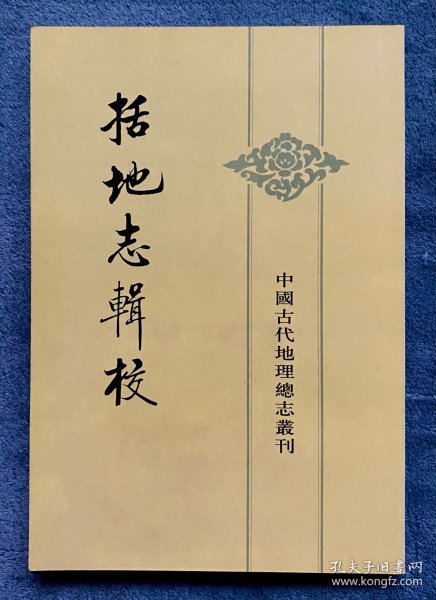 括地志輯校
中國古代地理總志叢刊
孔夫子旧书网
www.kongfz.com